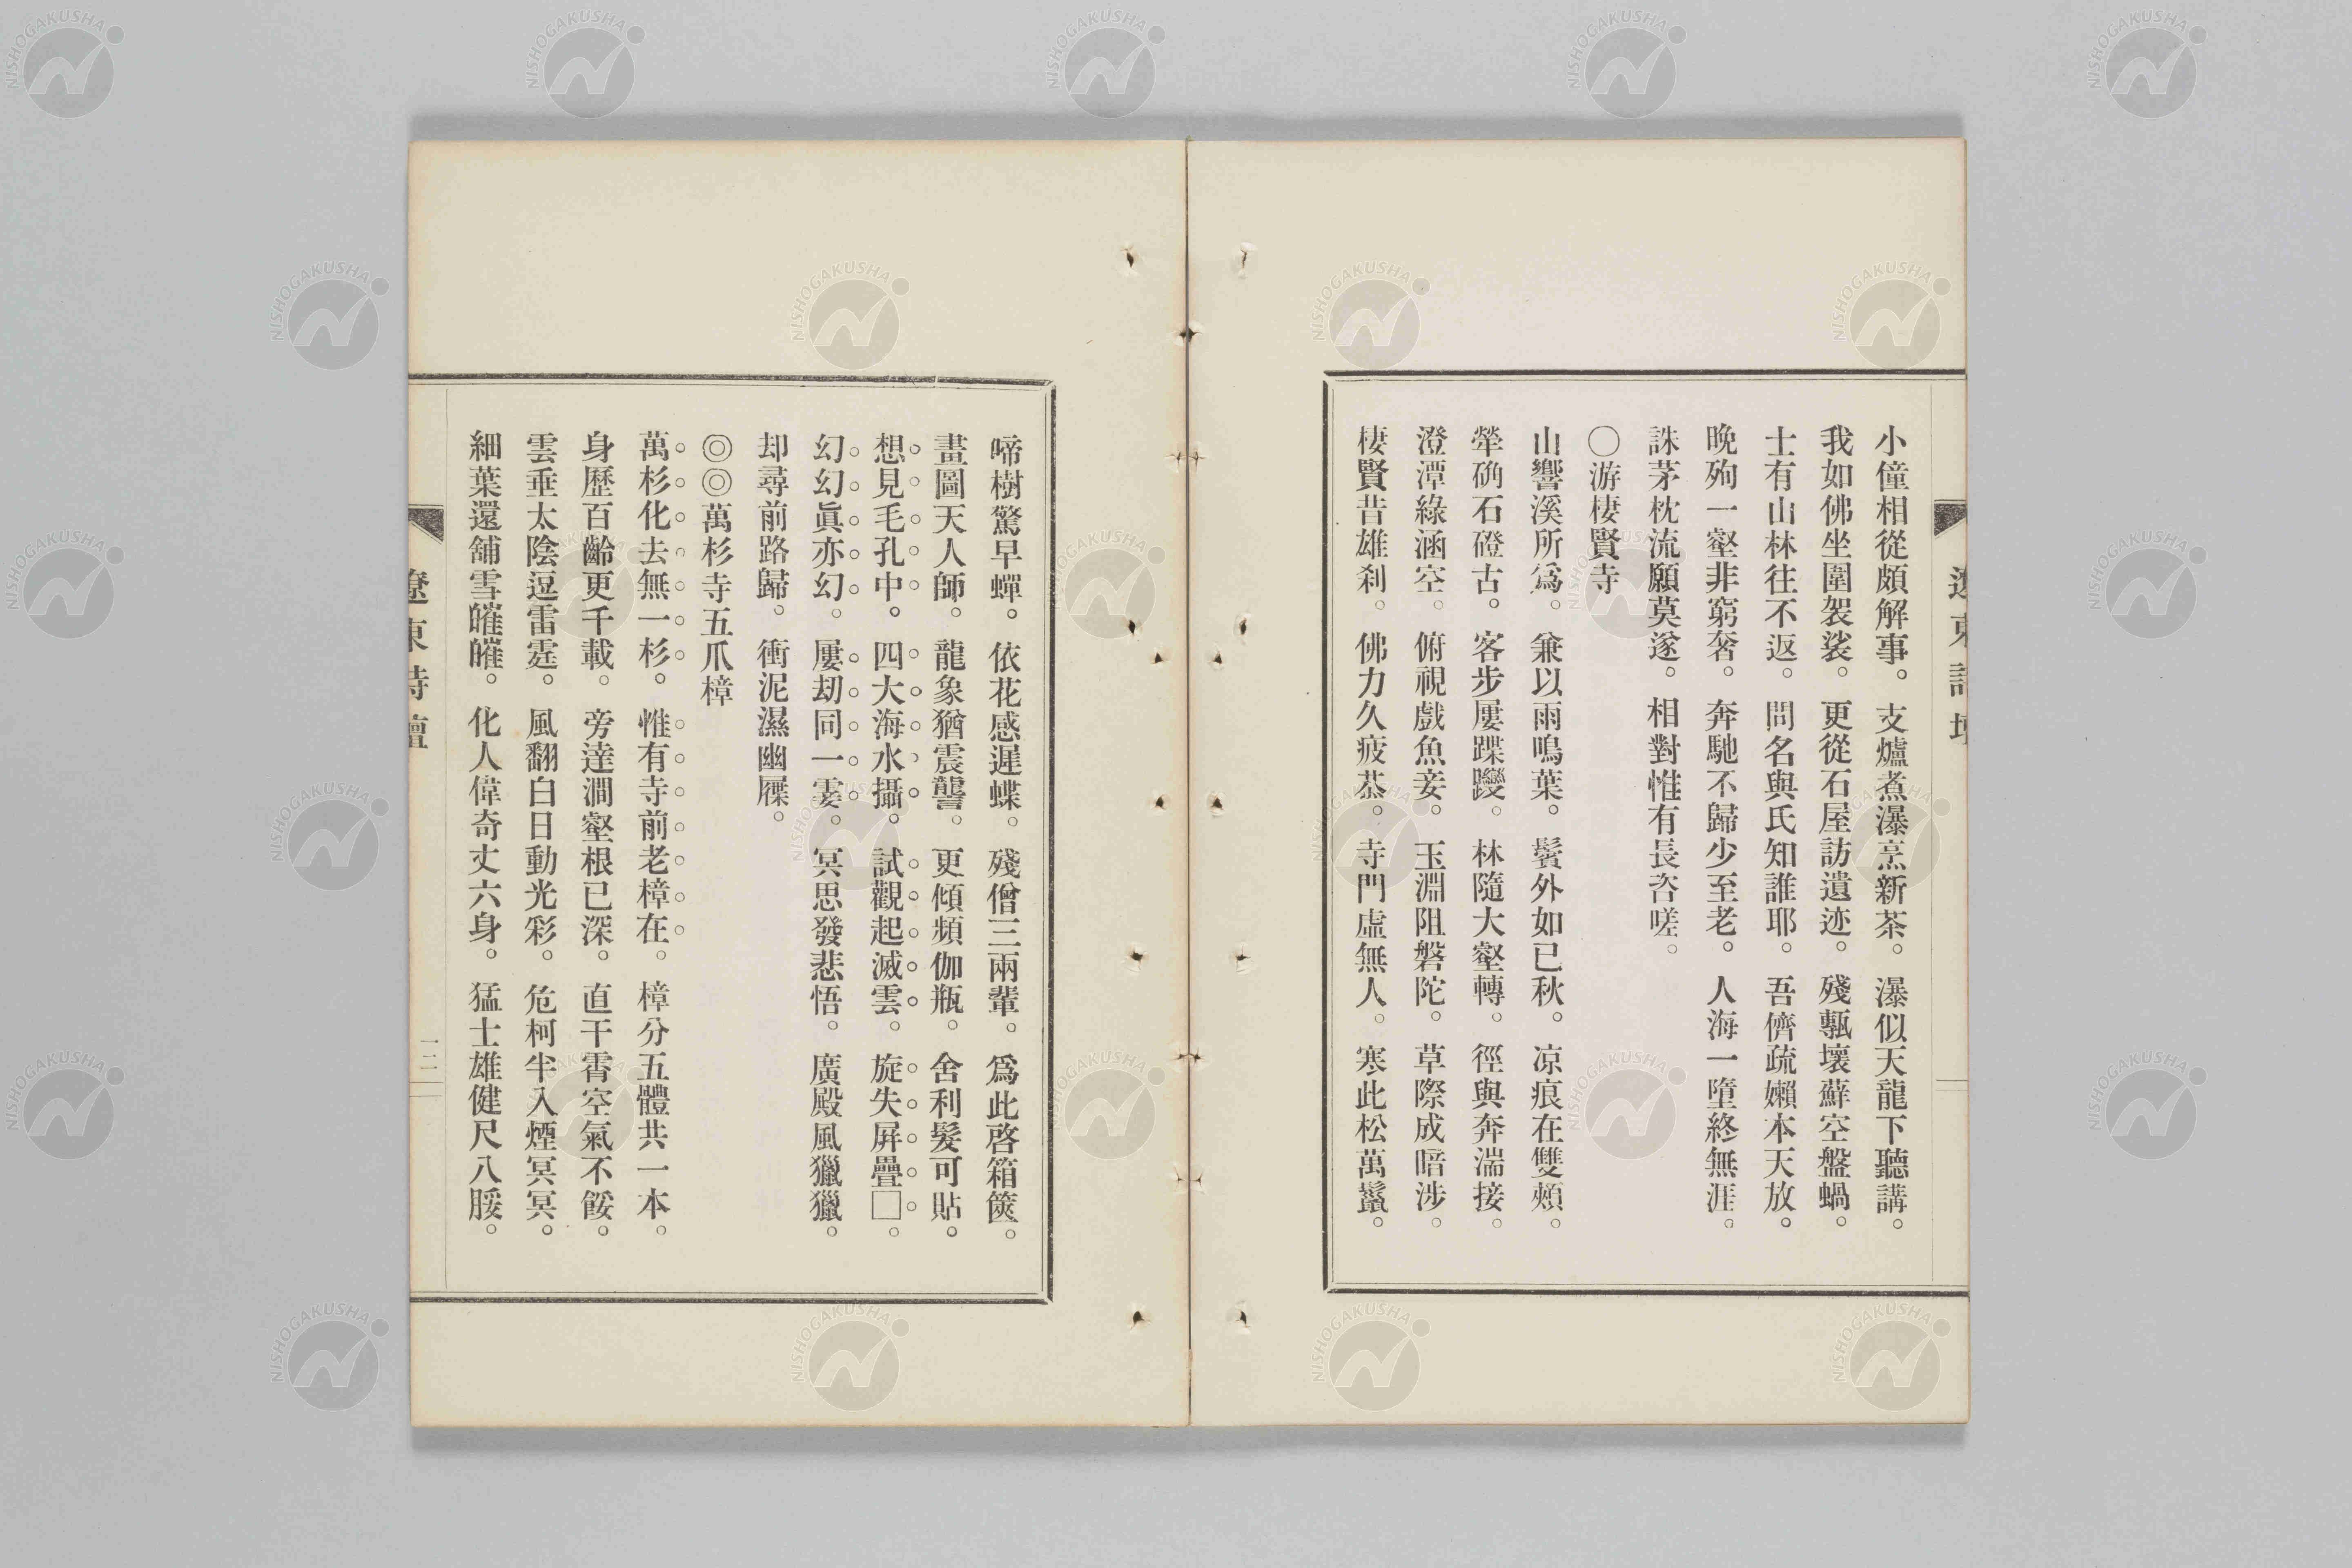 小僮相從頗解事。支爐煮瀑烹新茶。瀑似天龍下聽講。
我如佛坐圍袈裟。更從石屋訪遺迹。殘甎壞蘚空盤蝸。
士有山林往不返。問名與氏知誰耶。吾儕疏嬾本天放。
晚殉一壑非窮奢。奔馳不歸少至老。人海一墮終無涯。
誅茅枕流願莫遂。相對惟有長咨嗟。
〇游棲賢寺
山響溪所爲。兼以雨鳴葉。鬢外如已秋。凉痕在雙頰。
犖确石磴古。客步屢蹀躞。林隨大壑轉。徑與奔湍接。
澄潭綠涵空。俯視戲魚妾。玉淵阻磐陀。草際成暗涉。
棲賢昔雄刹。佛力久疲苶。寺門虛無人。寒此松萬鬣。
遼東詩壇
啼樹驚早蟬。依花感遲蝶。殘僧三兩輩。爲此啓箱篋。
畫圖天人師。龍象猶震讋。更傾頻伽瓶。舍利髮可貼。
想見毛孔中。四大海水攝。試觀起滅雲。旋失屏疊□。
幻幻眞亦幻。屢刧同一霎。冥思發悲悟。廣殿風獵獵。
却尋前路歸。衝泥濕幽屧。
◎◎萬杉寺五爪樟
萬杉化去無一杉。惟有寺前老樟在。樟分五體共一本。
身歷百齡更千載。旁達澗壑根已深。直干霄空氣不餒。
雲垂太陰逗雷霆。風翻白日動光彩。危柯半入煙冥冥。
細葉還舖雪皠皠。化人偉奇丈六身。猛士雄健尺八腰。
遼東詩壇
一二
NISHOGAKUSHA